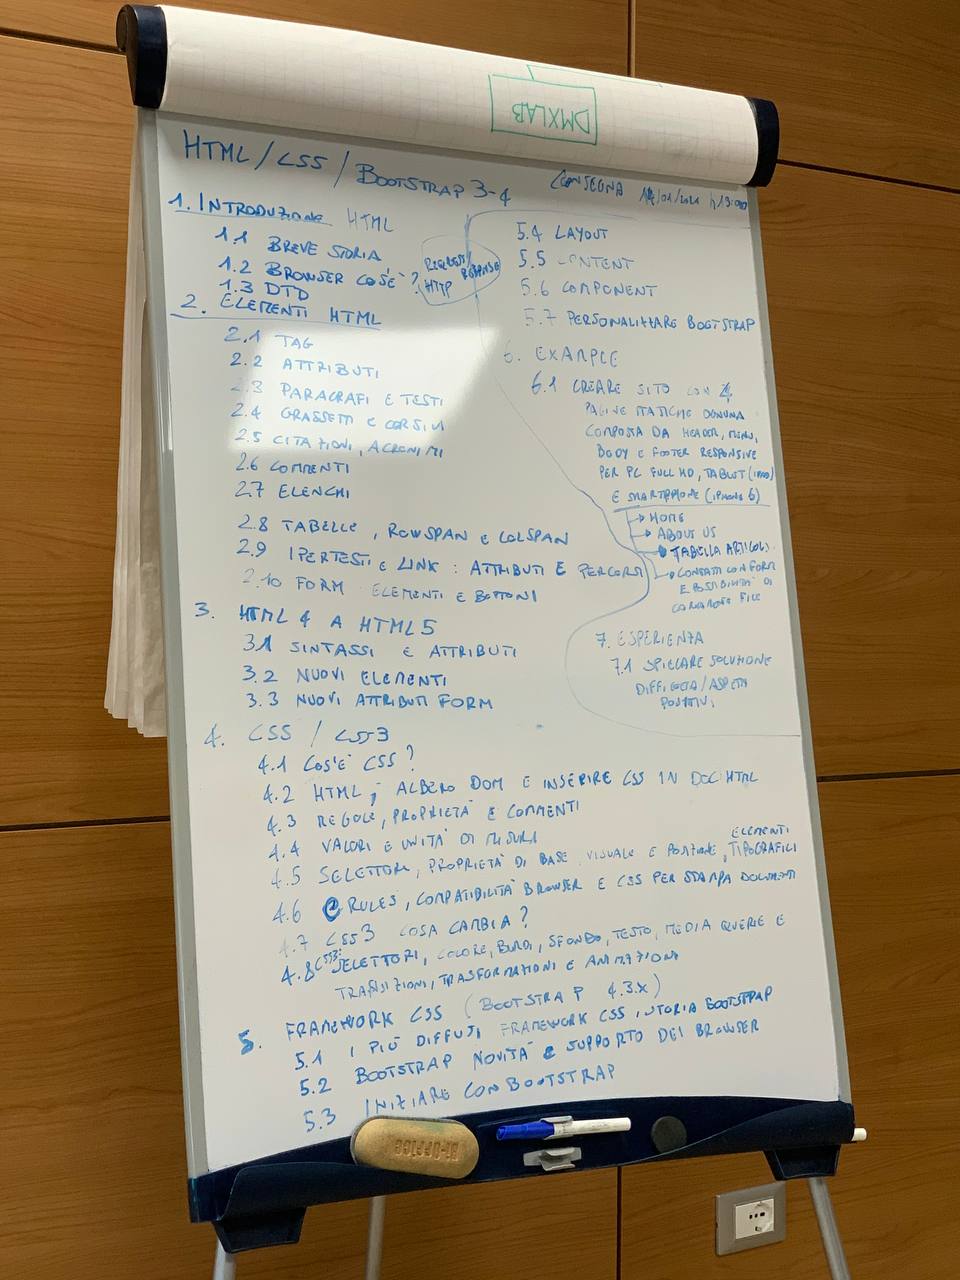 DMXLAB
HTML/CSS/BOOTSTRAP 3-4
CONSEGNA
1. INTRODUZIONE HTML
1.1 BREVE STORIA
1.2 BROWSER COS'È?
REQUEST/RESPONSE
HTTP
1.3 DTD
2. ELEMENTI HTML
2.1 TAG
2.2 ATTRIBUTI
2.3 PARAGRAFI E TESTI
2.4 GRASSETTI E CORSIVI
2.5 CITAZIONI, ACRONIMI
2.6 COMMENTI
2.7 ELENCHI
2.8 TABELLE, ROWSPAN E COLSPAN
2.9 IPERTESTI E LINK: ATTRIBUTI E PERCORSI
2.10 FORM ELEMENTI E BOTTONI
3. HTML 4 A HTML 5
3.1 SINTASSI E ATTRIBUTI
3.2 NUOVI ELEMENTI
3.3 NUOVI ATTRIBUTI FORM
4. CSS / CSS3
4.1 COS'È CSS?
4.2 HTML, ALBERO DOM E INSERIRE CSS IN DOC HTML
4.3 REGOLE, PROPRIETÀ E COMMENTI
4.4 VALORI E UNITÀ DI MISURA
4.5 SELETTORI, PROPRIETÀ DI BASE, VISUALE E POSIZIONE, ELEMENTI TIPOGRAFICI
4.6 @RULES, COMPATIBILITÀ BROWSER E CSS PER STAMPA DOCUMENTI
4.7 CSS3 COSA CAMBIA?
4.8 CSS3: SELETTORI, COLORE, BORDI, SFONDO, TESTO, MEDIA QUERIE E
TRANSIZIONI, TRASFORMAZIONI E ANIMAZIONI
5. FRAMEWORK CSS (BOOTSTRAP 4.3.X)
5.1 I PIÙ DIFFUSI FRAMEWORK CSS, STORIA BOOTSTRAP
5.2 BOOTSTRAP NOVITÀ E SUPPORTO DEI BROWSER
5.3 INIZIARE CON BOOTSTRAP
5.4 LAYOUT
5.5 CONTENT
5.6 COMPONENT
5.7 PERSONALIZZARE BOOTSTRAP
6. EXAMPLE
6.1 CREARE SITO CON 4
PAGINE STATICHE OGNUNA
COMPOSTA DA HEADER, MENU,
BODY E FOOTER RESPONSIVE
PER PC FULL HD, TABLET (IPAD)
E SMARTPHONE (IPHONE 6)
→ HOME
→ ABOUT US
→ TABELLA ARTICOLI
→ CONTATTI CON FORM
E POSSIBILITÀ DI
CARICARE FILE
7. ESPERIENZA
7.1 SPIEGARE SOLUZIONE
DIFFICOLTÀ/ASPETTI
POSITIVI
BI-OFFICE